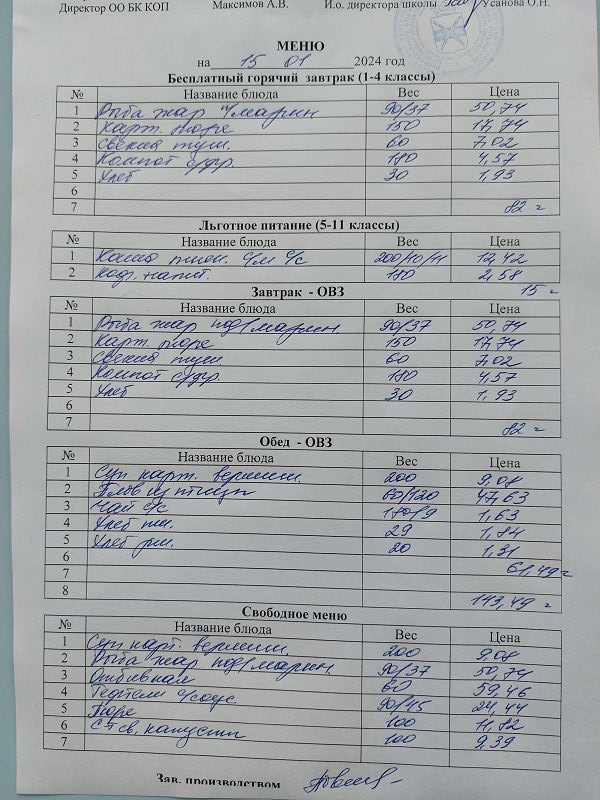 Директор ОО БК КОП Максимов А.В. И.о. директора школы Усанова О.Н.
МЕНЮ
на 15 01 2024 год
Бесплатный горячий завтрак (1-4 классы)
№ Название блюда Вес Цена
1 Рыба жар п/марин 90/37 50,74
2 Карт. пюре 150 17,74
3 Свекла туш. 60 7,02
4 Компот с/фр. 180 4,57
5 Хлеб 30 1,93
6
7 82 г
Льготное питание (5-11 классы)
№ Название блюда Вес Цена
1 Каша пшен. с/м с/с 200/10/11 12,42
2 Коф. напит. 180 2,58
15 г
Завтрак - ОВЗ
№ Название блюда Вес Цена
1 Рыба жар под/марин. 90/37 50,74
2 Карт. пюре 150 17,74
3 Свекла туш 60 7,02
4 Компот с/фр. 180 4,57
5 Хлеб 30 1,93
6
7 82 г
Обед - ОВЗ
№ Название блюда Вес Цена
1 Суп карт. вермиш. 200 9,08
2 Плов из птицы 80/120 47,63
3 Чай с/с 180/9 1,63
4 Хлеб пш. 29 1,84
5 Хлеб рж. 20 1,31
6
7 61,49 г
8 143,49 г
Свободное меню
№ Название блюда Вес Цена
1 Суп карт. вермиш. 200 9,08
2 Рыба жар под/марин. 90/37 50,74
3 Отбивная 60 59,46
4 Тефтели с/соус 90/45 24,44
5 Пюре 100 11,82
6 С т св. капусты 100 9,39
7
Зав. производством